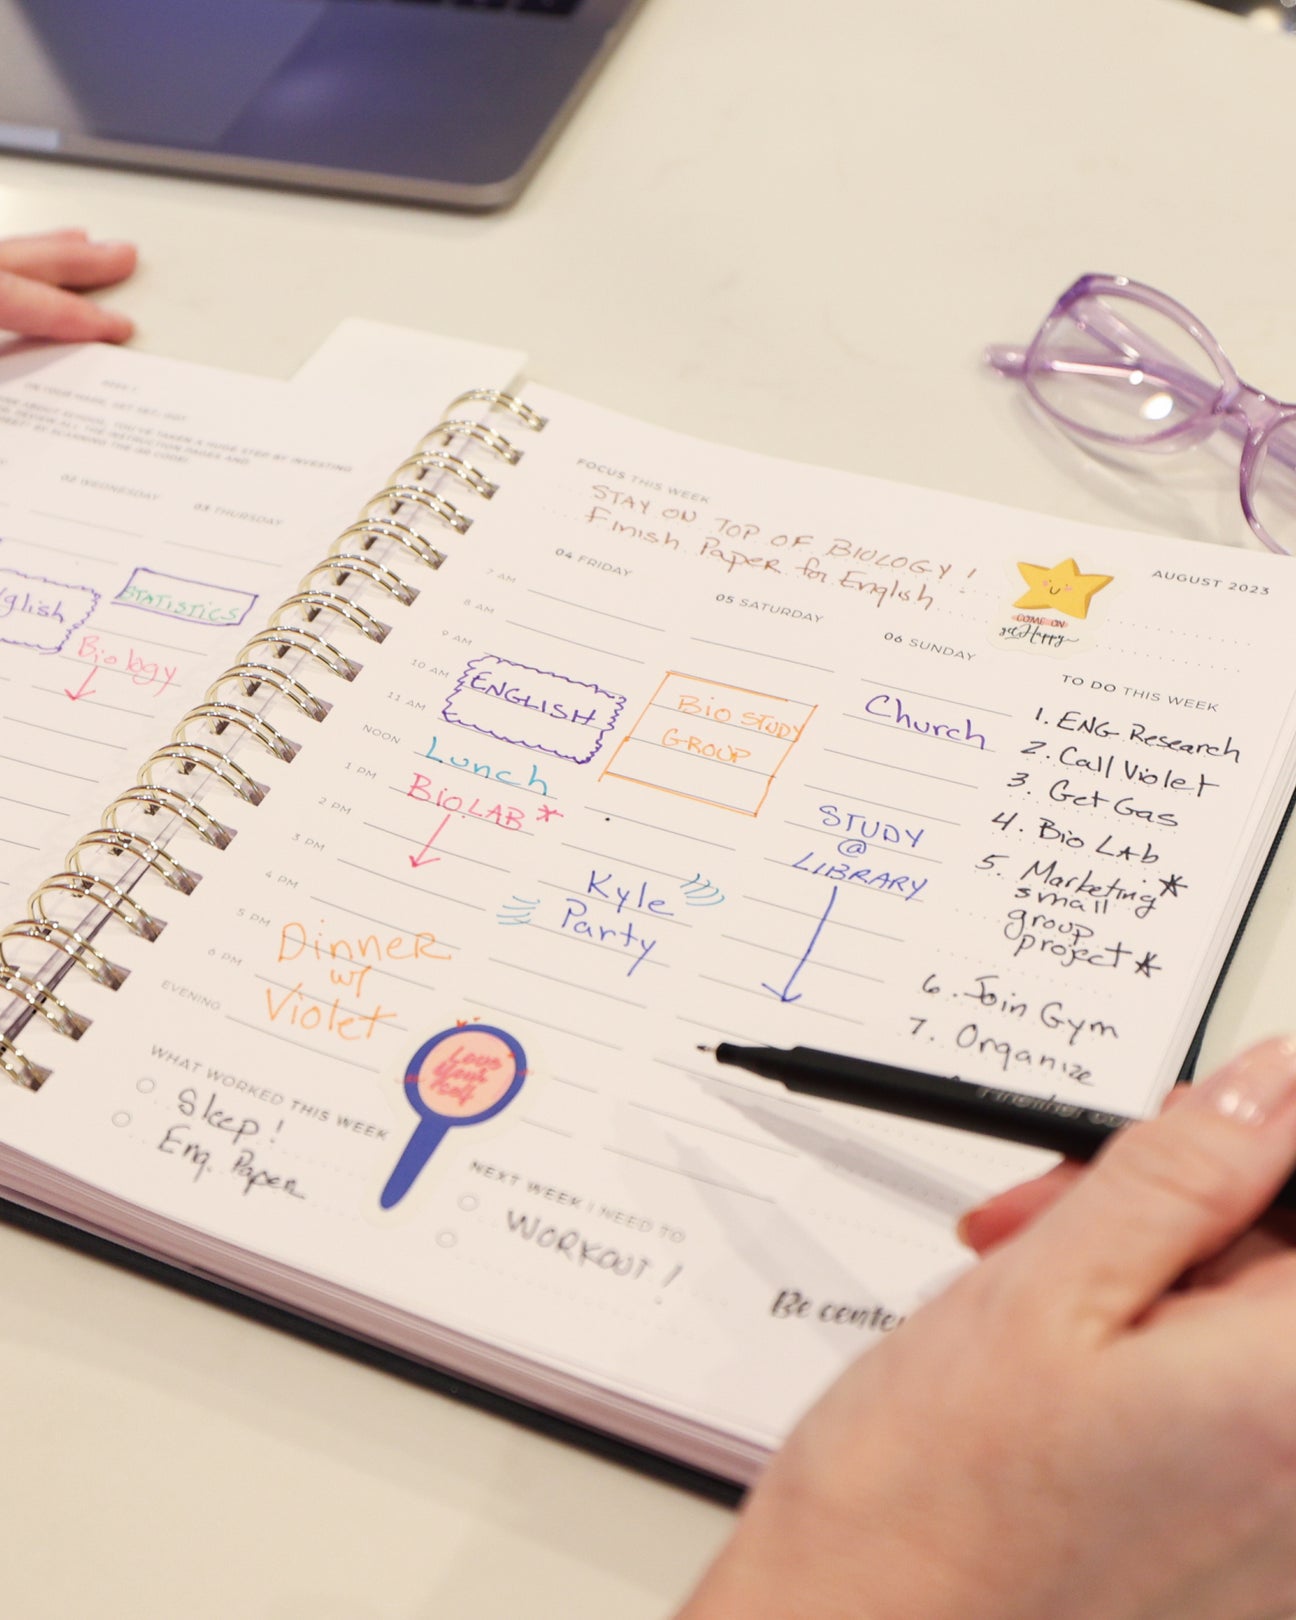 WEEK 1
ON YOUR MARK, GET SET, GO!
ABOUT SCHOOL, YOU'VE TAKEN A HUGE STEP BY INVESTING
REVIEW ALL THE INSTRUCTION PAGES AND
BY SCANNING THE QR CODE!
02 WEDNESDAY
03 THURSDAY
glish
STATISTICS
Biology
FOCUS THIS WEEK
STAY ON TOP OF BIOLOGY!
Finish Paper for English
AUGUST 2023
COME ON
get Happy
04 FRIDAY
05 SATURDAY
06 SUNDAY
7 AM
8 AM
9 AM
10 AM
11 AM
NOON
1 PM
2 PM
3 PM
4 PM
5 PM
6 PM
EVENING
ENGLISH
Lunch
BIO LAB *
Dinner
w/
Violet
Bio STUDY
GROUP
Kyle
Party
Church
STUDY
@
LIBRARY
TO DO THIS WEEK
1. ENG Research
2. Call Violet
3. Get Gas
4. Bio Lab
5. Marketing *
small
group
project *
6. Join Gym
7. Organize
WHAT WORKED THIS WEEK
Sleep!
Eng. Paper
Love
Your
NEXT WEEK I NEED TO
WORKOUT!
Be cente